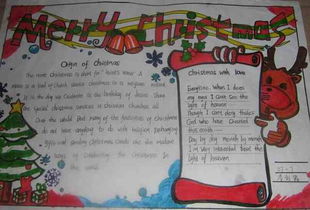 Merry Christmas
Origin of Christmas
The name Christmas is short for "Christ's mass". A
mass is a kind of Church service. Christmas is a religious
It is the day we celebrate as the birthday of Jesus.
the special Christmas services in Christian Churches
Over the world. But many of the festivities of Christmas
do not have anything to do with religion. Exchanging
gifts and sending Christmas cards are the modern
ways of celebrating the Christmas in
the world.
Christmas with love
Everytime When I does
my mass I can see the
light of heaven
Though I can't deny that's
God who have Created
this earth
Day by day month by month
I'm very interested about the
light of heaven